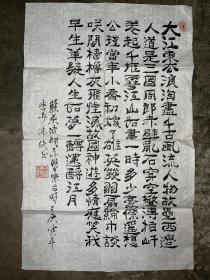 大江東去浪淘盡千古風流人物故壘西邊
人道是三國周郎赤壁亂石穿空驚濤拍岸
捲起千堆雪江山如畫一時多少豪傑遙想
公瑾當年小喬初嫁了雄姿英發羽扇綸巾談
笑間檣櫓灰飛煙滅故國神遊多情應笑我
早生華髮人生如夢一樽還酹江月
蘇東坡詞赤壁懷古 庚寅年